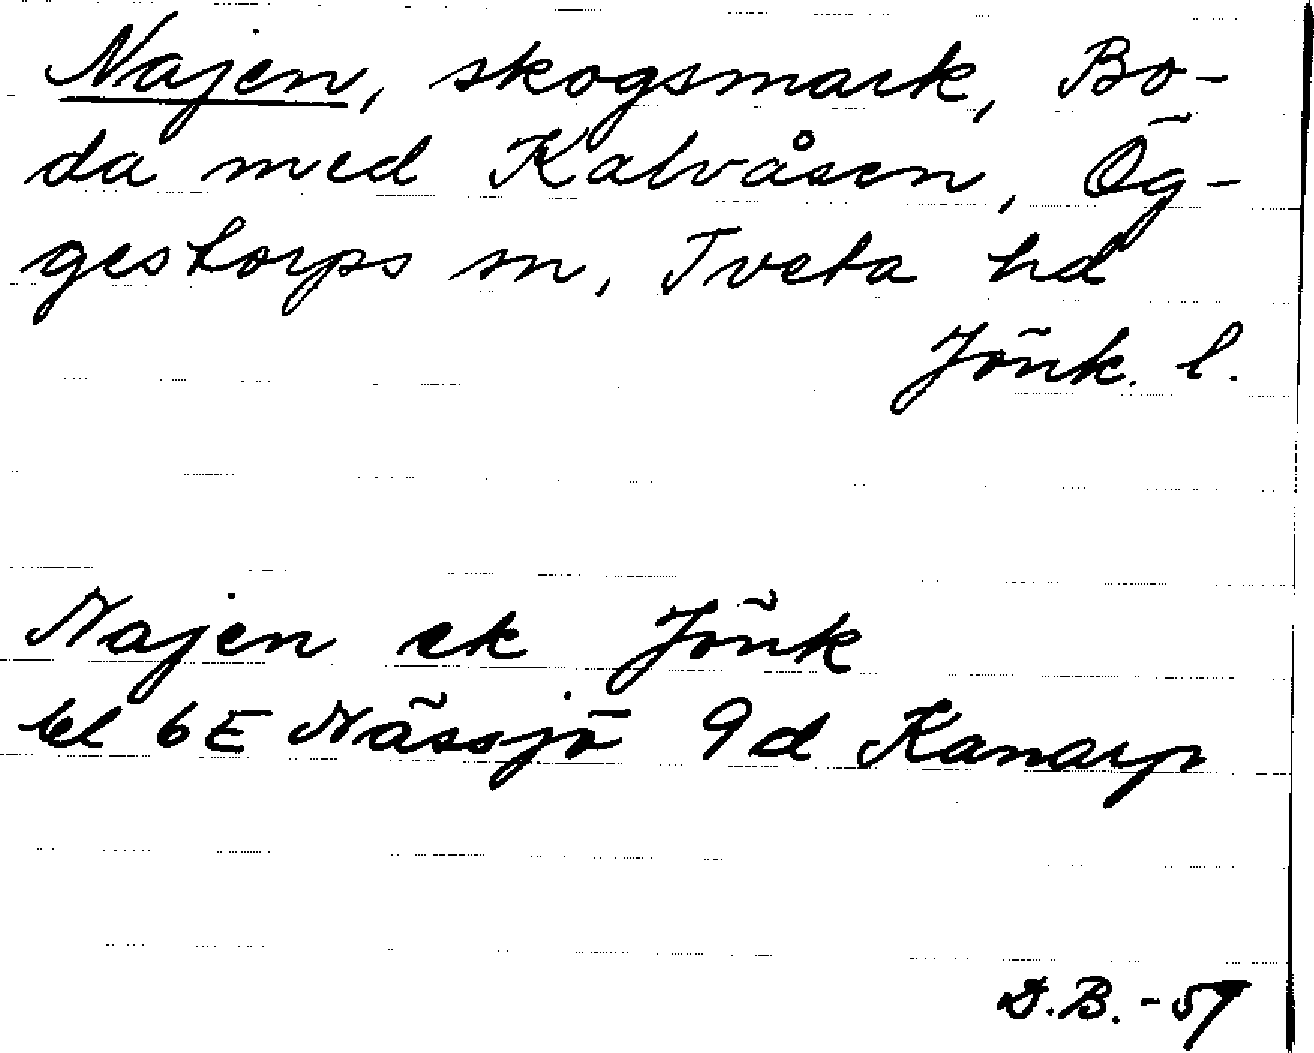 Najen, skogsmark, Bo-
da med Kalvåsen, Ög-
gestorps sn, Tveta hd
Jönk. l.
Najen ek Jönk
bl 6E Nässjö 9d Kanarp
D.B. -57